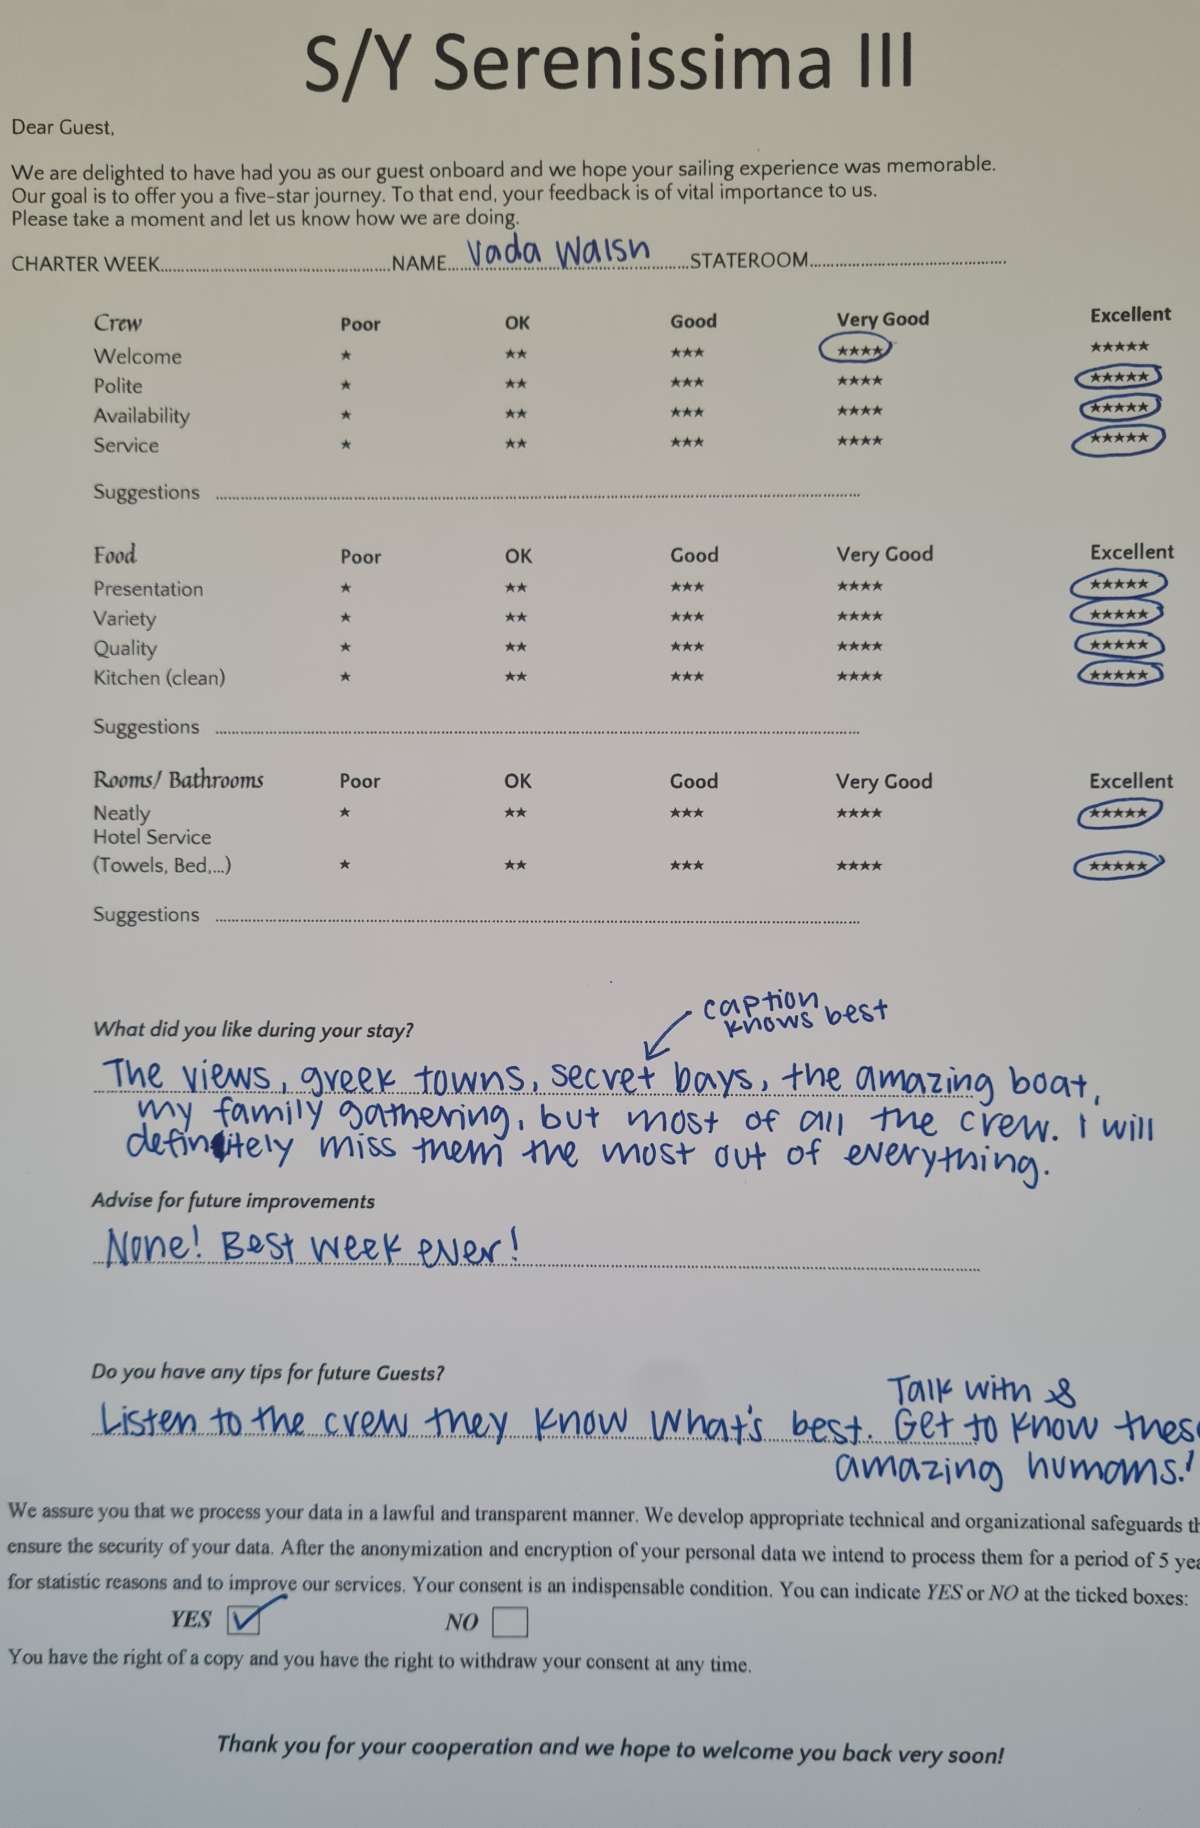 S/Y Serenissima III
Dear Guest,
We are delighted to have had you as our guest onboard and we hope your sailing experience was memorable.
Our goal is to offer you a five-star journey. To that end, your feedback is of vital importance to us.
Please take a moment and let us know how we are doing.
CHARTER WEEK..............................NAME....Vada Walsh....STATEROOM..............................
Crew Poor OK Good Very Good Excellent
Welcome ★ ★★ ★★★ ★★★★ ★★★★★
Polite ★ ★★ ★★★ ★★★★ ★★★★★
Availability ★ ★★ ★★★ ★★★★ ★★★★★
Service ★ ★★ ★★★ ★★★★ ★★★★★
Suggestions ..............................
Food Poor OK Good Very Good Excellent
Presentation ★ ★★ ★★★ ★★★★ ★★★★★
Variety ★ ★★ ★★★ ★★★★ ★★★★★
Quality ★ ★★ ★★★ ★★★★ ★★★★★
Kitchen (clean) ★ ★★ ★★★ ★★★★ ★★★★★
Suggestions ..............................
Rooms/ Bathrooms Poor OK Good Very Good Excellent
Neatly ★ ★★ ★★★ ★★★★ ★★★★★
Hotel Service
(Towels, Bed,...) ★ ★★ ★★★ ★★★★ ★★★★★
Suggestions ..............................
caption
knows best
What did you like during your stay?
The views, greek towns, secret bays, the amazing boat,
my family gathering, but most of all the crew. I will
definitely miss them the most out of everything.
Advise for future improvements
None! Best week ever!
Do you have any tips for future Guests?
Talk with &
Listen to the crew they know what's best. Get to know these
amazing humans!
We assure you that we process your data in a lawful and transparent manner. We develop appropriate technical and organizational safeguards th
ensure the security of your data. After the anonymization and encryption of your personal data we intend to process them for a period of 5 yea
for statistic reasons and to improve our services. Your consent is an indispensable condition. You can indicate YES or NO at the ticked boxes:
YES ☑ NO ☐
You have the right of a copy and you have the right to withdraw your consent at any time.
Thank you for your cooperation and we hope to welcome you back very soon!